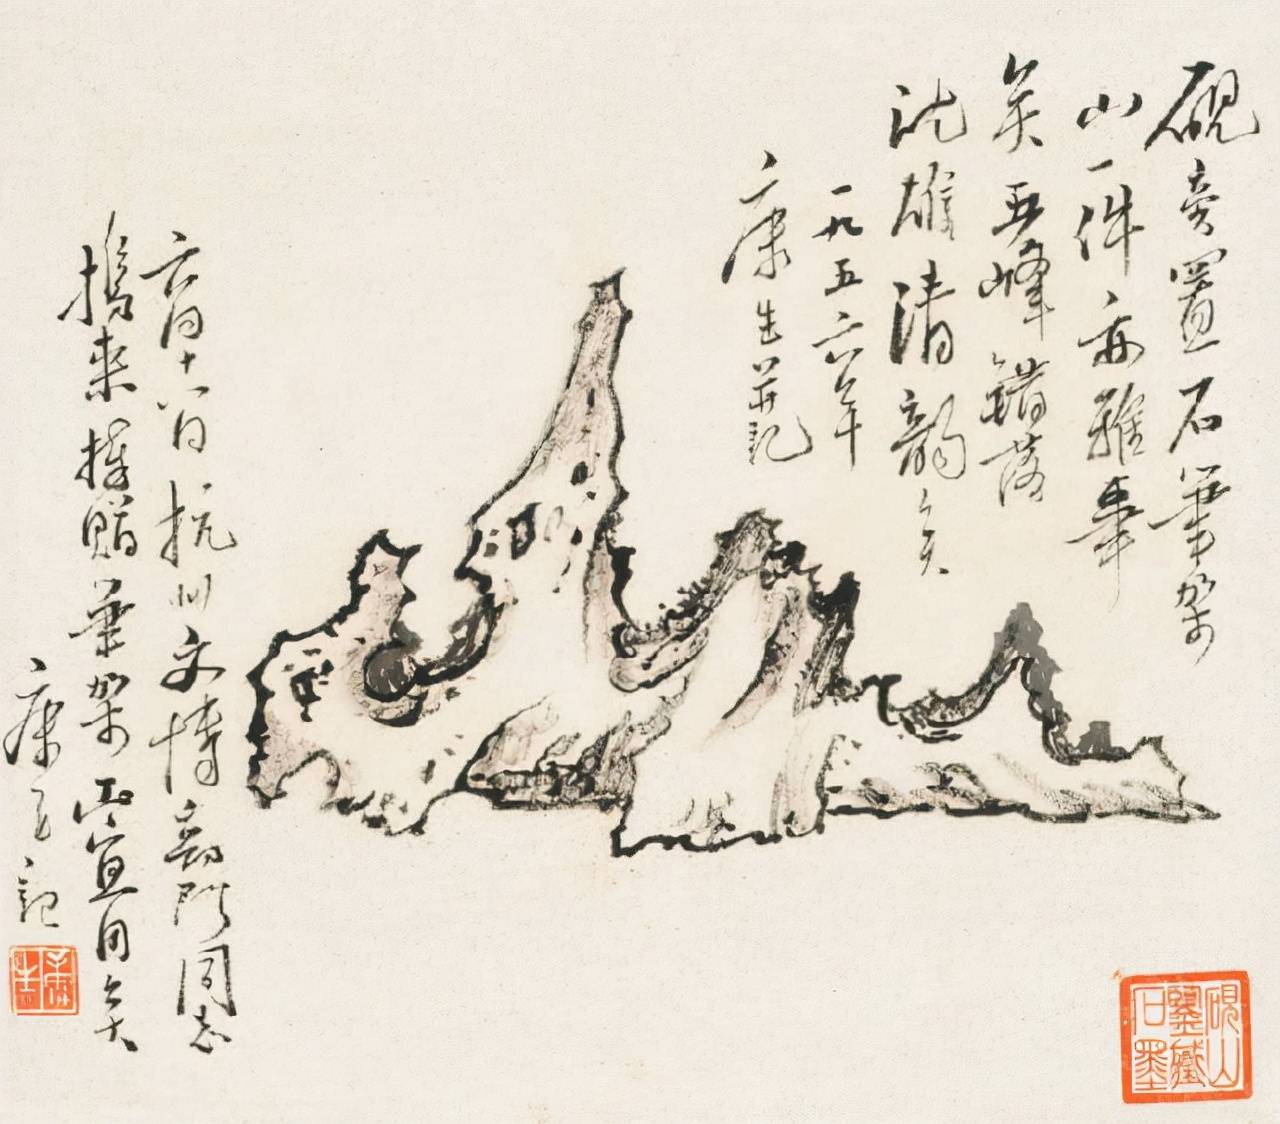 硯旁置石筆架
山一件亦雅事
矣五峰錯落
沈雄清韻矣
一九五六年
康生並記
六月十八日杭州文博部門同志
携来擇贈筆架正宜用矣
康記
康生
硯山
鑒藏
石墨